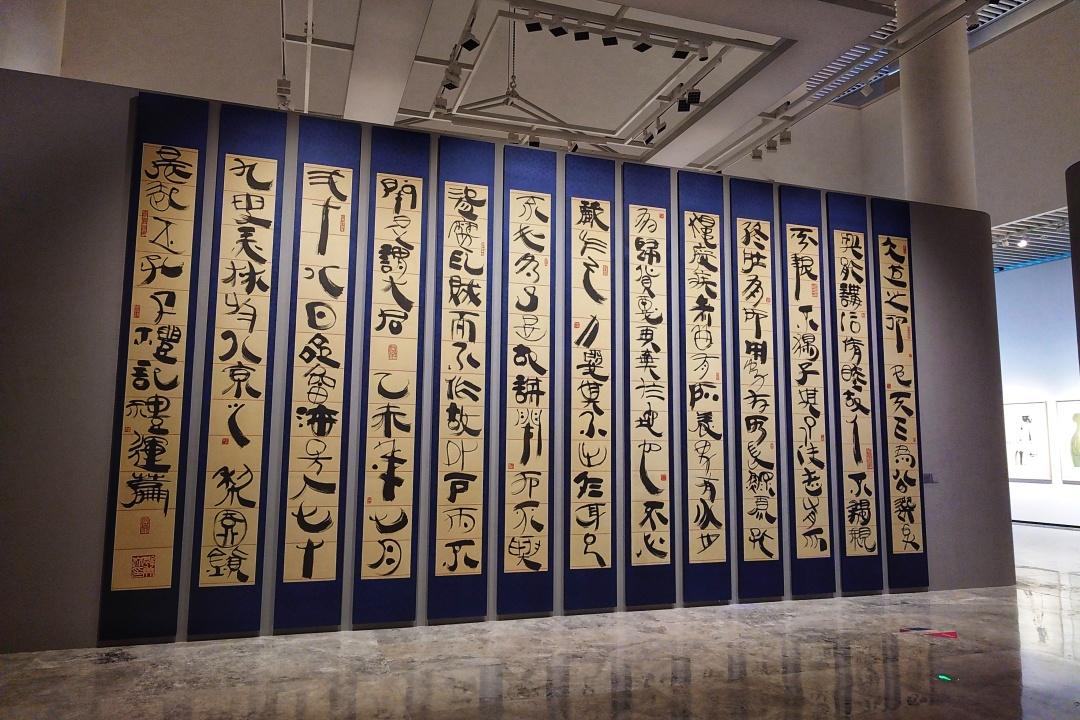 大道之行也天下為公選賢
與能講信修睦故人不獨親
其親不獨子其子使老有所
終壯有所用幼有所長鰥寡孤
獨廢疾者皆有所養男有分女
有歸貨惡其棄於地也不必
藏於己力惡其不出於身也
不必為己是故謀閉而不興
盜竊亂賊而不作故外戶而不
閉是謂大同乙未年七月
弍十八日南海人七十
九叟於京
孔子禮記禮運篇